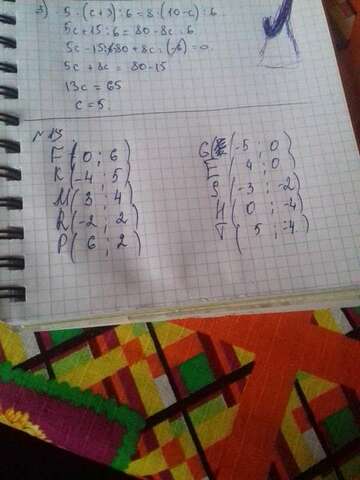 3) 5·(c+3):6=8·(10-c):6
5c+15:6=80-8c:6
5c-15:6 80+8c:(-6)=0
5c+8c=80-15
13c=65
c=5
№13.
F(0;6)
K(-4;5)
M(3;4)
R(-2;2)
P(6;2)
G(-5;0)
E(4;0)
S(-3;-2)
H(0;-4)
T(5;-4)